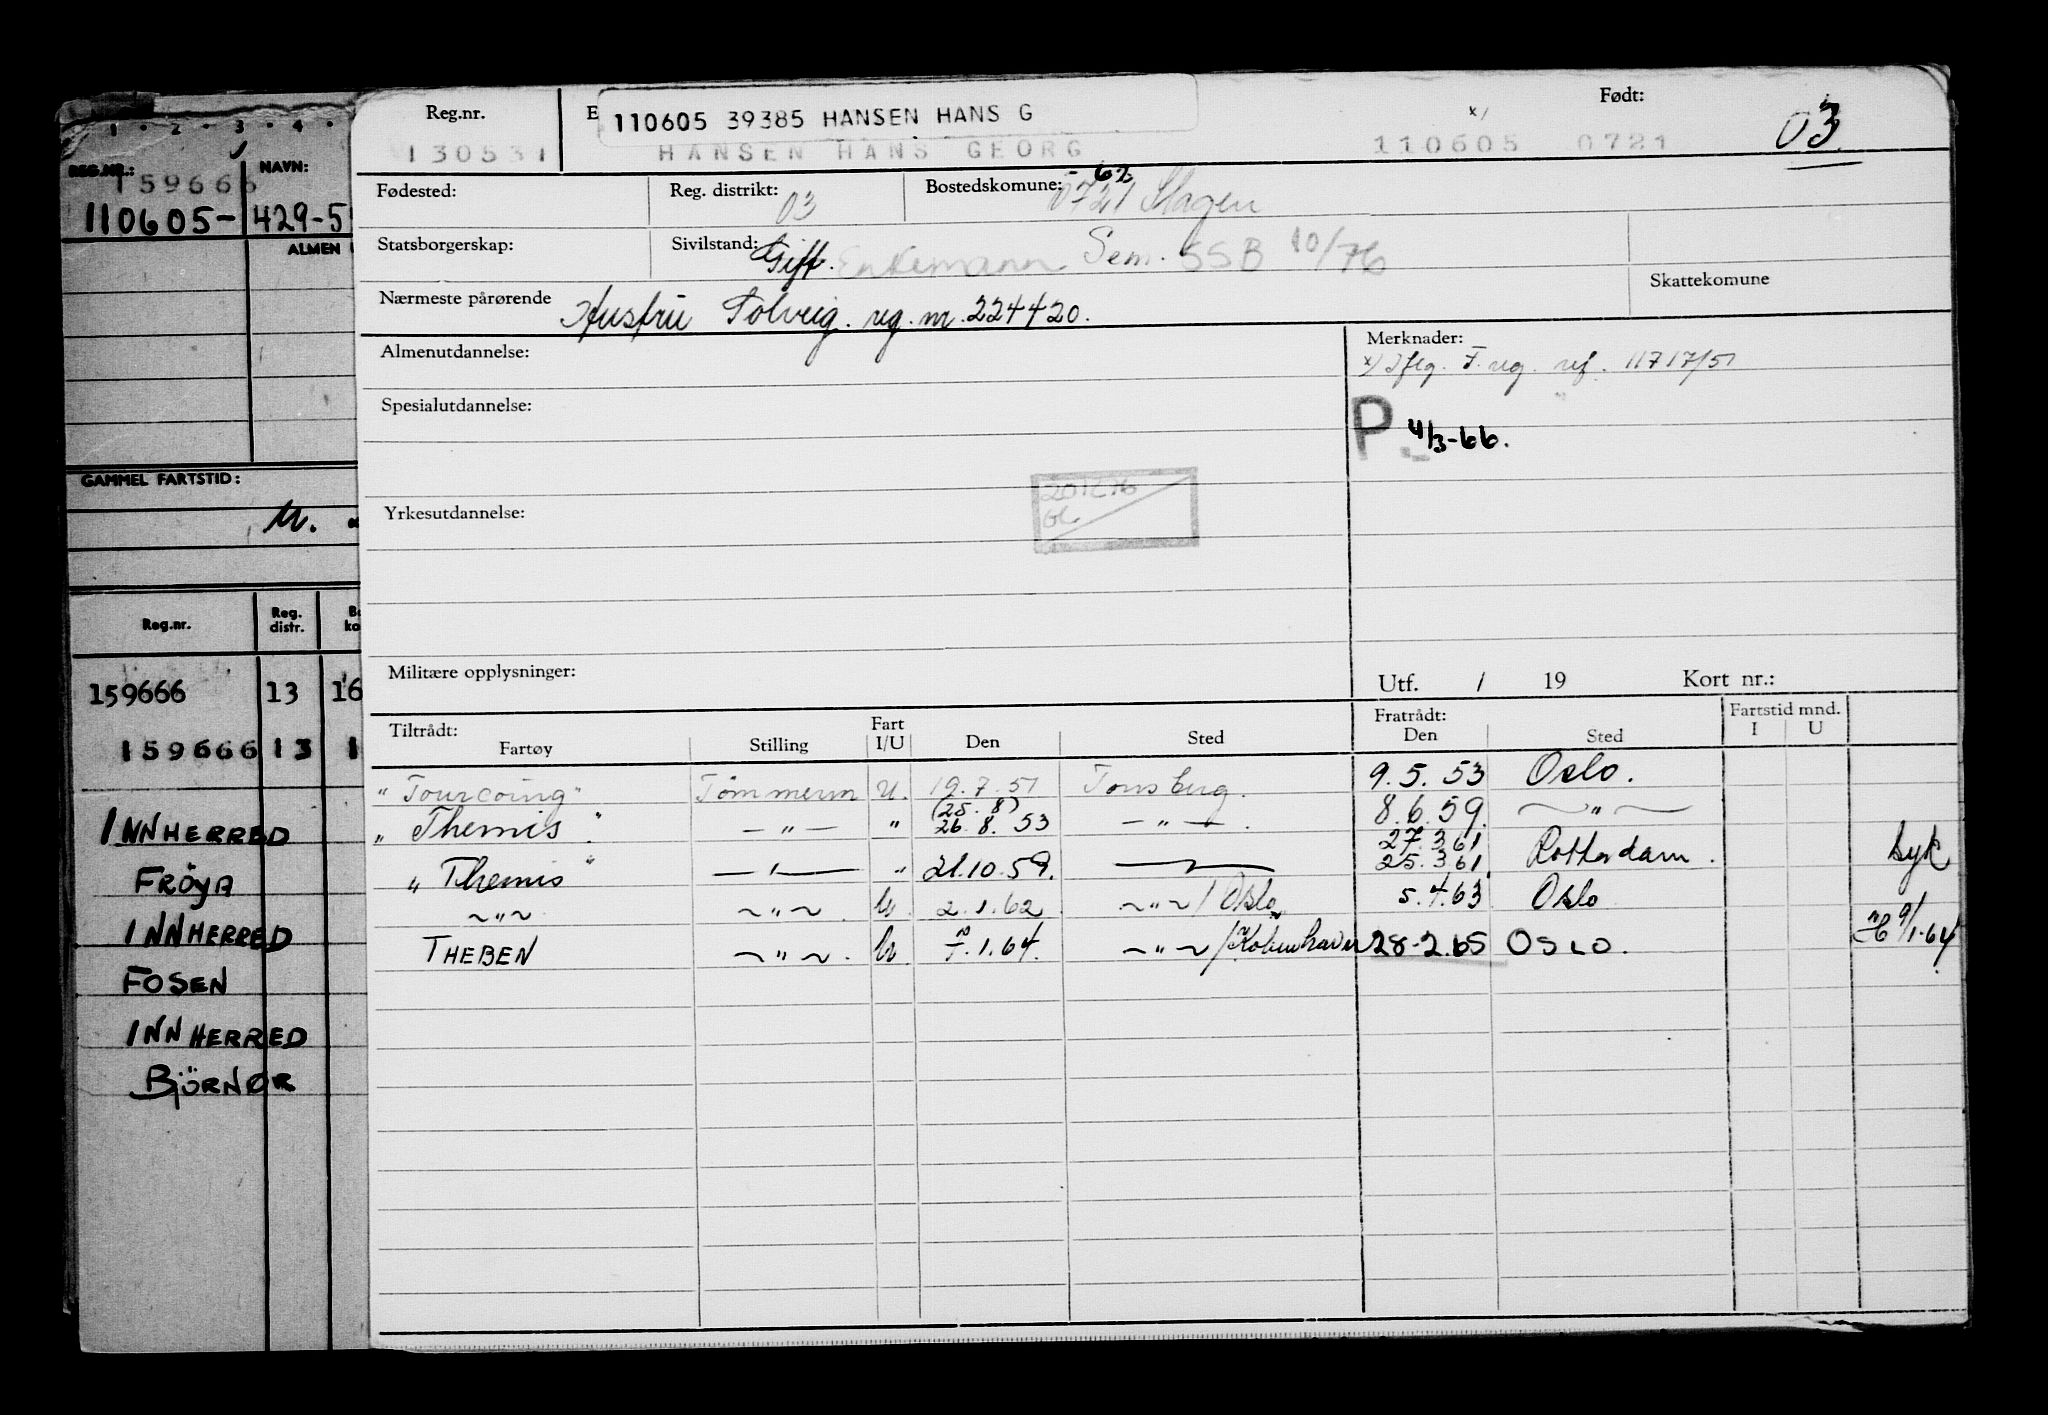 1 · 2 · 3 · 4 ·
REG.NR.: NAVN:
159666
110605- 429-5
ALMEN
GAMMEL FARTSTID:
U.
Reg.nr. Reg. distr.
159666 13 16
159666 13 1
INNHERRED
FRÖYA
INNHERRED
FOSEN
INNHERRED
BJÖRNØR
Reg.nr. E 110605 39385 HANSEN HANS G Født:
130531 HANSEN HANS GEORG x/ 110605 0721 03
Fødested: Reg. distrikt: 03 Bostedskomune: -62 0721 Slagen
Statsborgerskap: Sivilstand: Gift. Enkemann Sem. SSB 10/76
Skattekomune
Nærmeste pårørende Hustru Solveig. reg. nr. 224420.
Almenutdannelse: Merknader:
x/ Iflg. F. reg. ref. 11717/51
Spesialutdannelse:
P. 4/3-66.
Yrkesutdannelse:
Militære opplysninger: Utf. / 19 Kort nr.:
Tiltrådt: Fart Fratrådt: Fartstid mnd.
Fartøy Stilling I/U Den Sted Den Sted I U
"Tourcoing" Tömmerm U. 19.7.51 Tönsberg. 9.5.53 Oslo.
(25.8)
"Themis" — " — " 26.8.53 — " —. 8.6.59. — " —
27.3.61
"Themis" — " — " 21.10.59. — 25.3.61 Rotterdam. Syk
~ " ~ ~ " ~. U. 2.1.62 ~ " ~ / Oslo 5.4.63 Oslo
THEBEN ~ " ~. U. 7.1.64. ~ " ~ / Köbenhavn 28-2.65 OSLO. 9/1-64